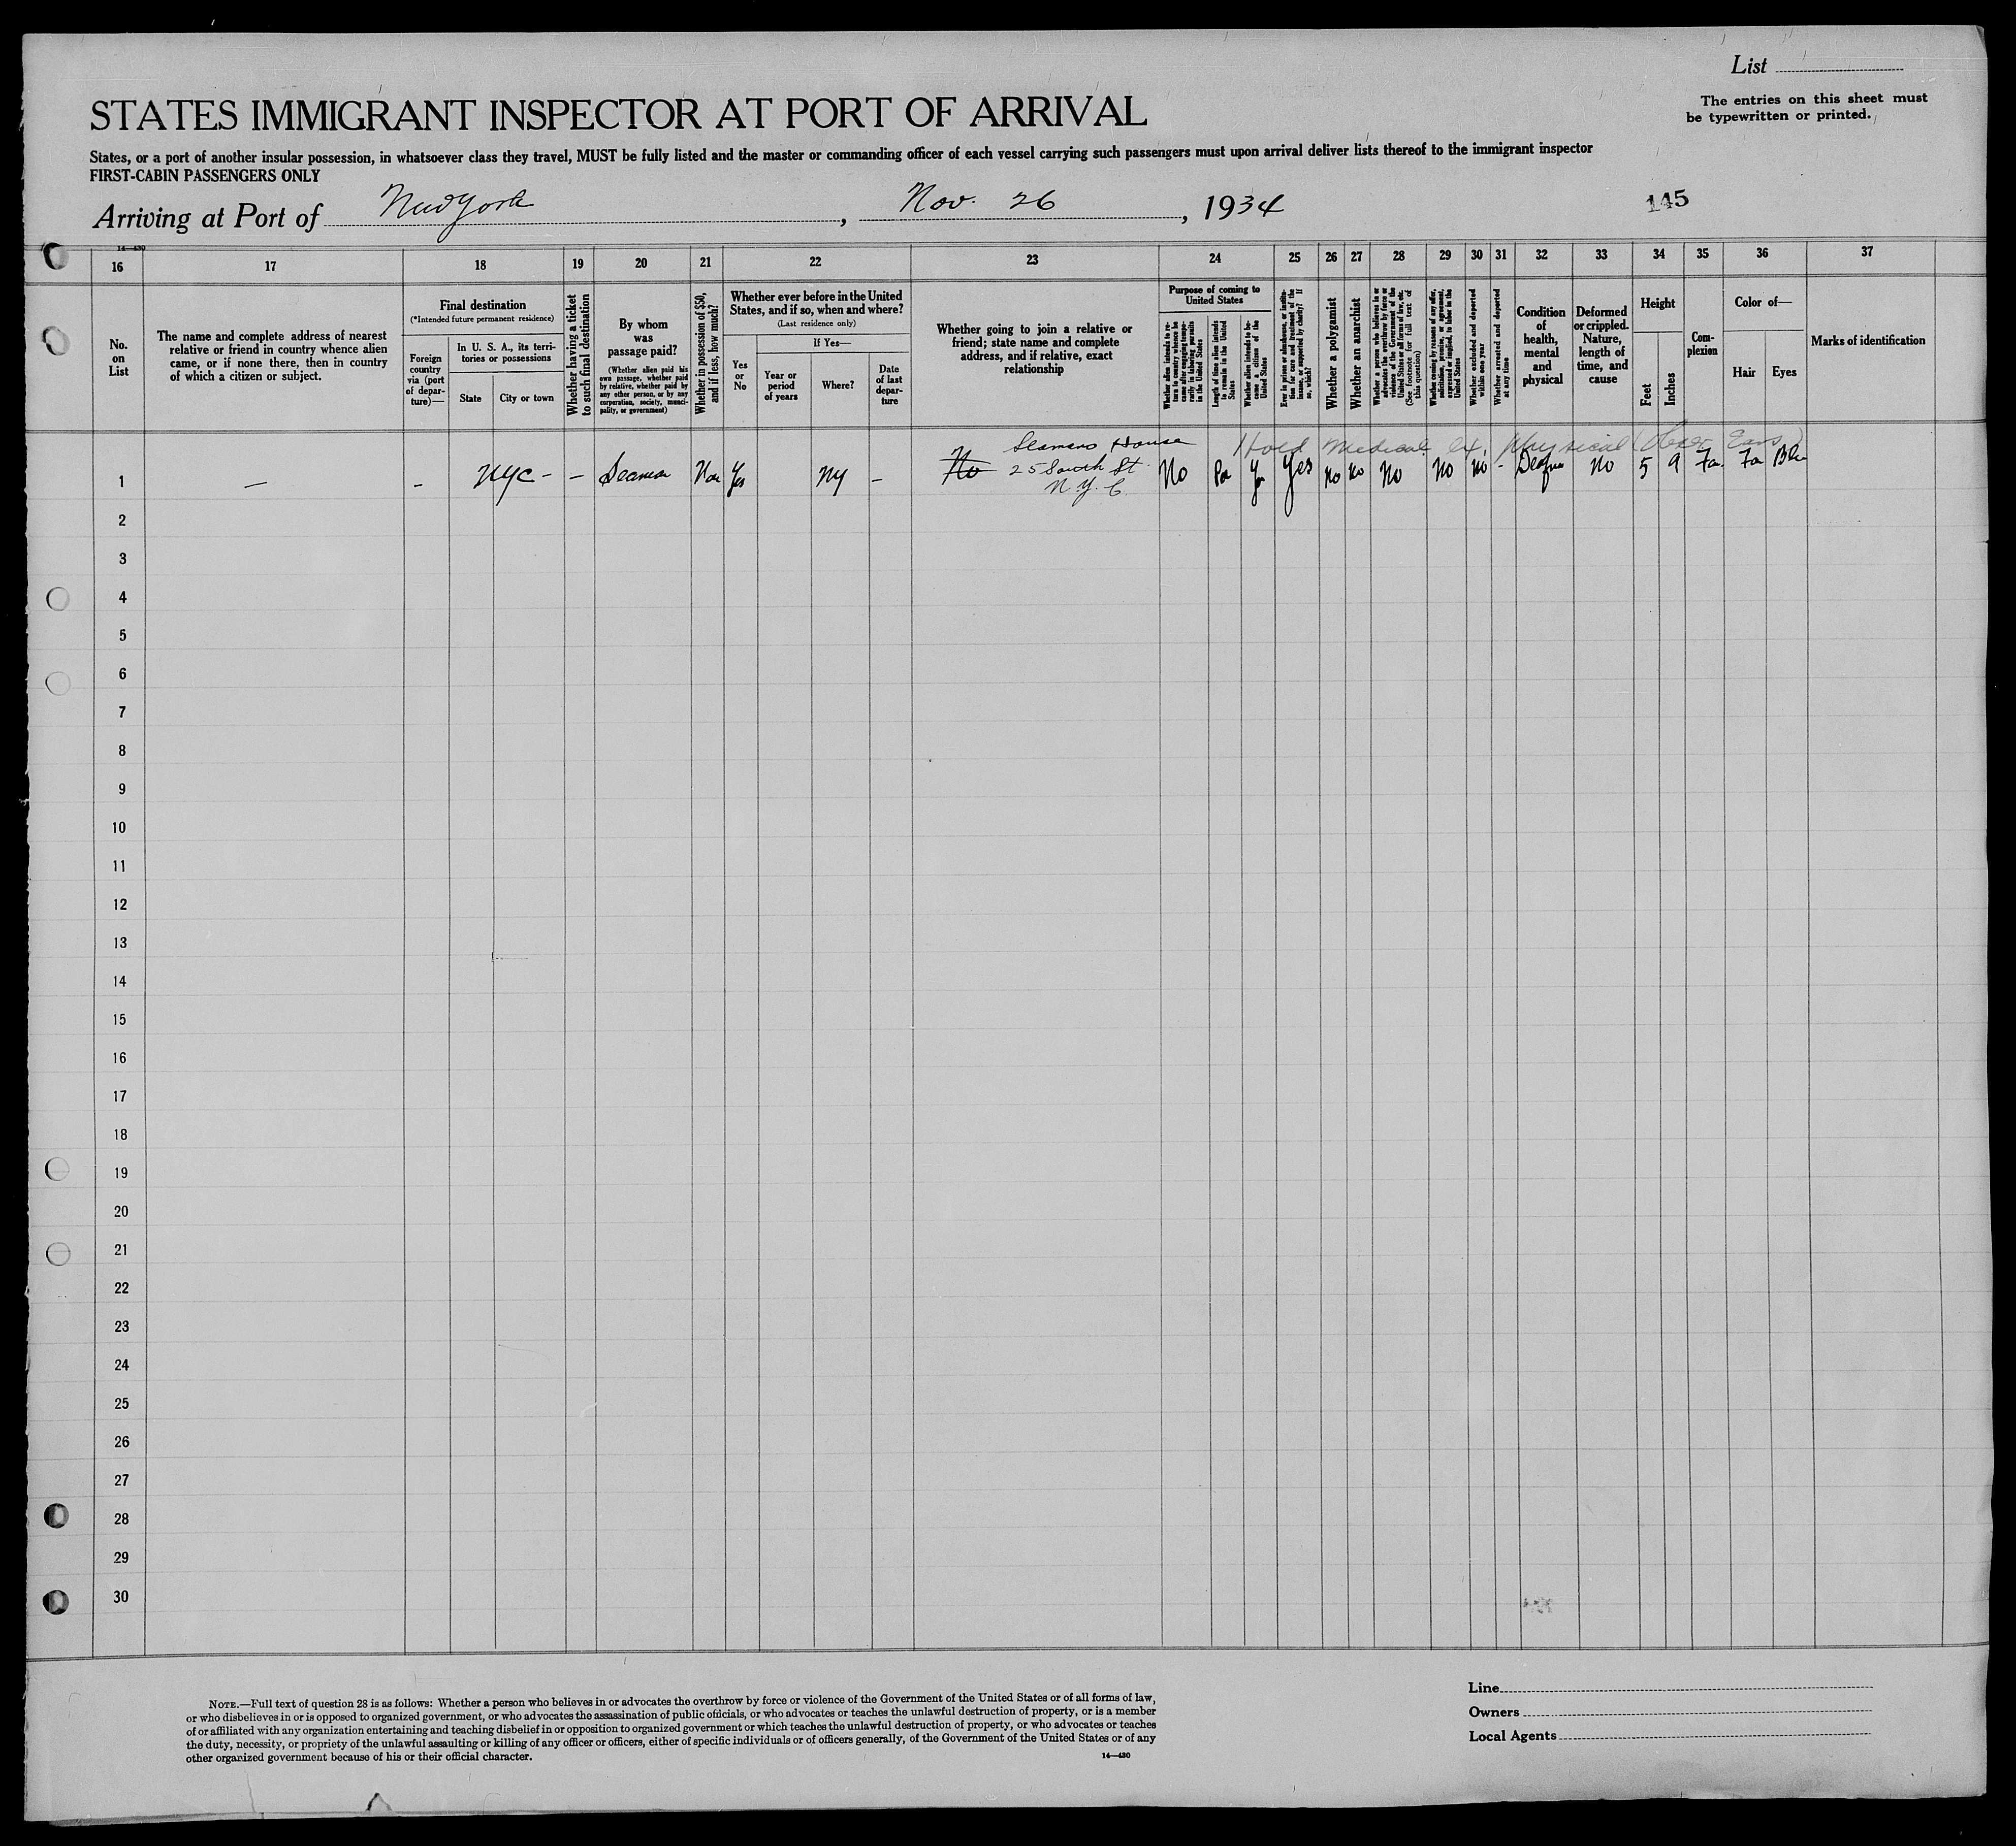 List
The entries on this sheet must
be typewritten or printed.
STATES IMMIGRANT INSPECTOR AT PORT OF ARRIVAL
States, or a port of another insular possession, in whatsoever class they travel, MUST be fully listed and the master or commanding officer of each vessel carrying such passengers must upon arrival deliver lists thereof to the immigrant inspector
FIRST-CABIN PASSENGERS ONLY
Arriving at Port of New York, Nov. 26, 1934
145
14—430
16 17 18 19 20 21 22 23 24 25 26 27 28 29 30 31 32 33 34 35 36 37
No.
on
List
The name and complete address of nearest
relative or friend in country whence alien
came, or if none there, then in country
of which a citizen or subject.
Final destination
(*Intended future permanent residence)
Foreign
country
via (port
of depar-
ture)—
In U. S. A., its terri-
tories or possessions
State
City or town
Whether having a ticket
to such final destination
By whom
was
passage paid?
(Whether alien paid his
own passage, whether paid
by relative, whether paid by
any other person, or by any
corporation, society, munici-
pality, or government)
Whether in possession of $50,
and if less, how much?
Whether ever before in the United
States, and if so, when and where?
(Last residence only)
Yes
or
No
If Yes—
Year or
period
of years
Where?
Date
of last
depar-
ture
Whether going to join a relative or
friend; state name and complete
address, and if relative, exact
relationship
Purpose of coming to
United States
Whether alien intends to re-
turn to country whence he
came after engaging tempo-
rarily in laboring pursuits
in the United States
Length of time alien intends
to remain in the United
States
Whether alien intends to be-
come a citizen of the
United States
Ever in prison or almshouse, or institu-
tion for care and treatment of the
insane, or supported by charity? If
so, which?
Whether a polygamist
Whether an anarchist
Whether a person who believes in or
advocates the overthrow by force or
violence of the Government of the
United States or all forms of law, etc.
(See footnote for full text of
this question)
Whether coming by reason of any offer,
solicitation, promise, or agreement,
expressed or implied, to labor in the
United States
Whether excluded and deported
within one year
Whether arrested and deported
at any time
Condition
of
health,
mental
and
physical
Deformed
or crippled.
Nature,
length of
time, and
cause
Height
Feet
Inches
Com-
plexion
Color of—
Hair
Eyes
Marks of identification
Seamans House Hold Medical ex. physical
1 — — NYC - — Seaman Yes NY — No 25 South St No Yes No No No No No - No 5 9 Fa Fa Blu
N.Y.C.
2
3
4
5
6
7
8
9
10
11
12
13
14
15
16
17
18
19
20
21
22
23
24
25
26
27
28
29
30
NOTE.—Full text of question 28 is as follows: Whether a person who believes in or advocates the overthrow by force or violence of the Government of the United States or of all forms of law,
or who disbelieves in or is opposed to organized government, or who advocates the assassination of public officials, or who advocates or teaches the unlawful destruction of property, or is a member
of or affiliated with any organization entertaining and teaching disbelief in or opposition to organized government or which teaches the unlawful destruction of property, or who advocates or teaches
the duty, necessity, or propriety of the unlawful assaulting or killing of any officer or officers, either of specific individuals or of officers generally, of the Government of the United States or of any
other organized government because of his or their official character.
14—430
Line
Owners
Local Agents